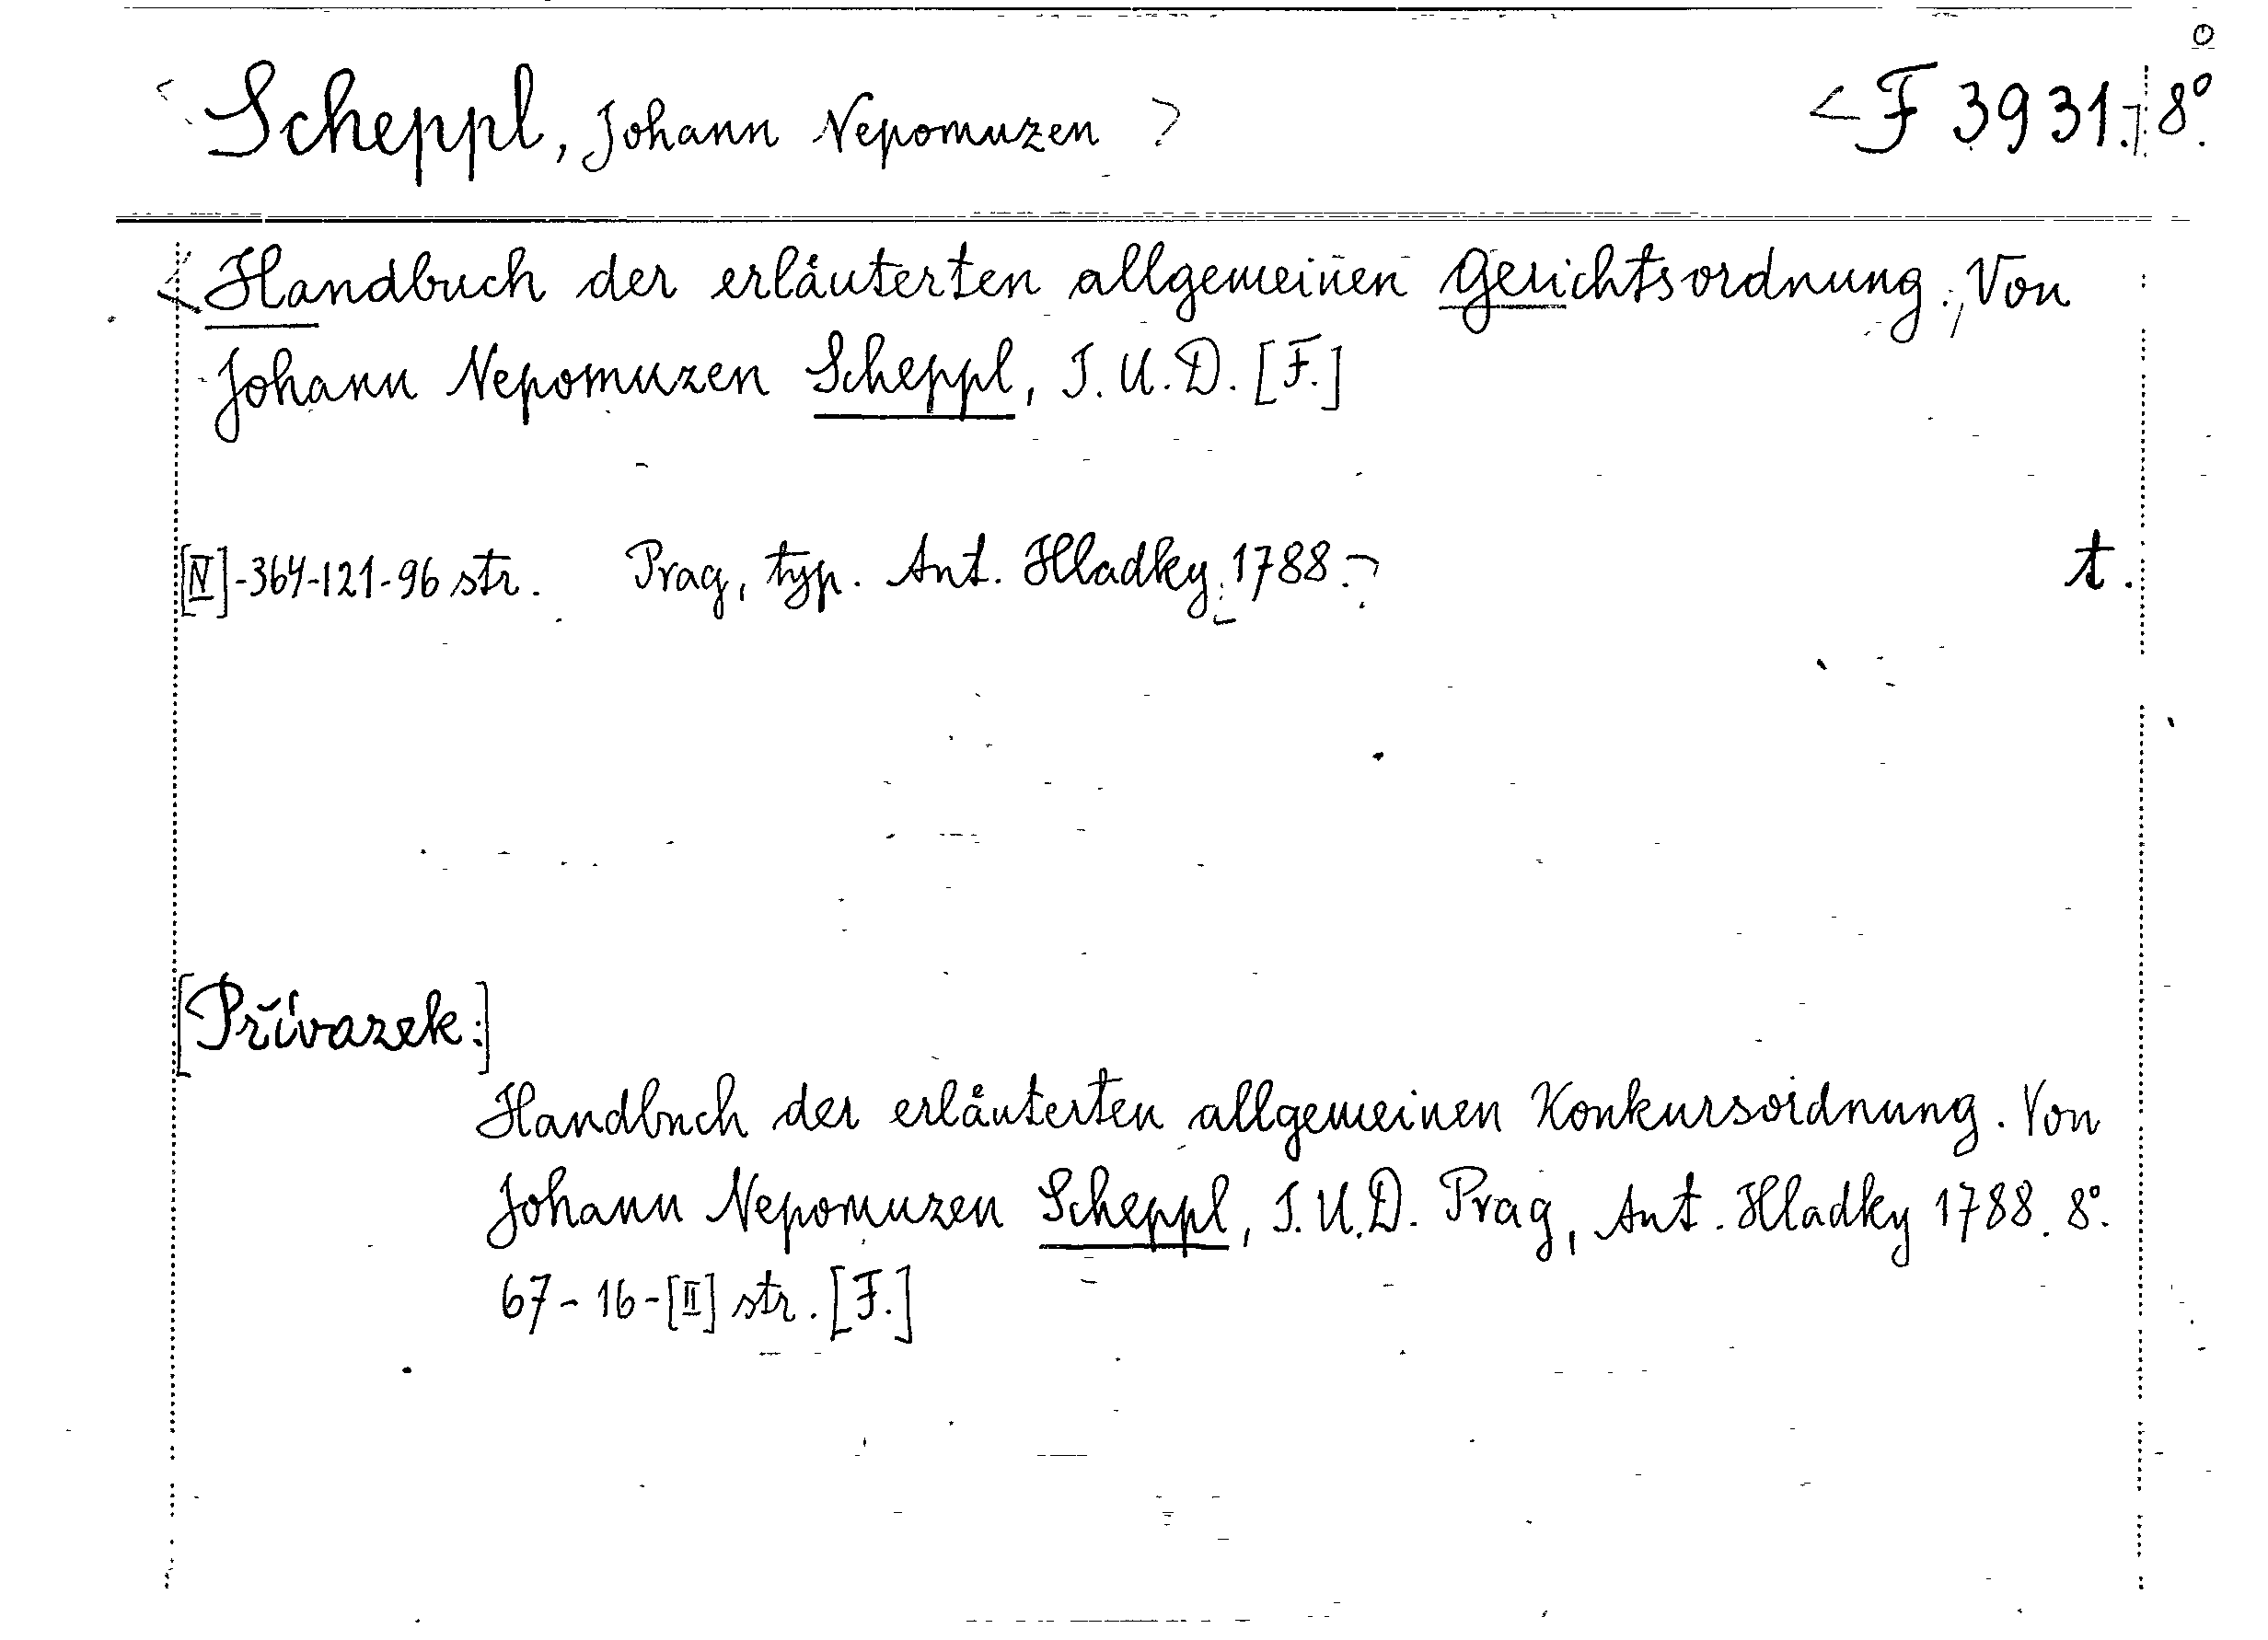 <Scheppl, Johann Nepomuzen> <F 3931.> 8°.
<Handbuch der erläuterten allgemeinen Gerichtsordnung. Von
Johann Nepomuzen Scheppl, J. U. D. [F.]
[IV]-364-121-96 str. Prag, typ. Ant. Hladky, 1788.> t.
[Přívazek:]
Handbuch der erläuterten allgemeinen Konkursordnung. Von
Johann Nepomuzen Scheppl, J. U. D. Prag, Ant. Hladky 1788. 8°.
67-16-[II] str. [F.]